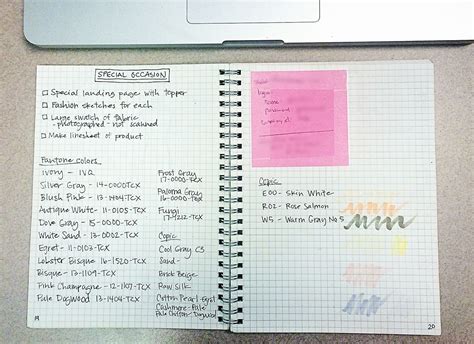 SPECIAL OCCASION
Special landing page with topper
Fashion sketches for each
Large swatch of fabric
- photographed - not scanned
Make linesheet of product
Pantone colors
Ivory - IVQ
Silver Gray - 14-0000TCX
Blush Pink - 13-1404TCX
Antique White - 11-0105-TCX
Dove Gray - 15-0000-TCX
White Sand - 13-0002-TCX
Egret - 11-0103-TCX
Lobster Bisque 16-1520-TCX
Bisque - 13-1109-TCX
Pink Champagne - 12-1107-TCX
Pale Dogwood 13-1404-TCX
Frost Gray
17-0000-TCX
Paloma Gray
16-0000-TCX
Fungi
17-9212-TCX
Copic
Cool Gray C3
Sand -
Brick Beige
Raw Silk
Cotton Pearl-
Cashmere-Pale
Pale Chiffon-Dogwood
19
Copic
E00 - Skin White
R02 - Rose Salmon
W5 - Warm Gray No 5
20